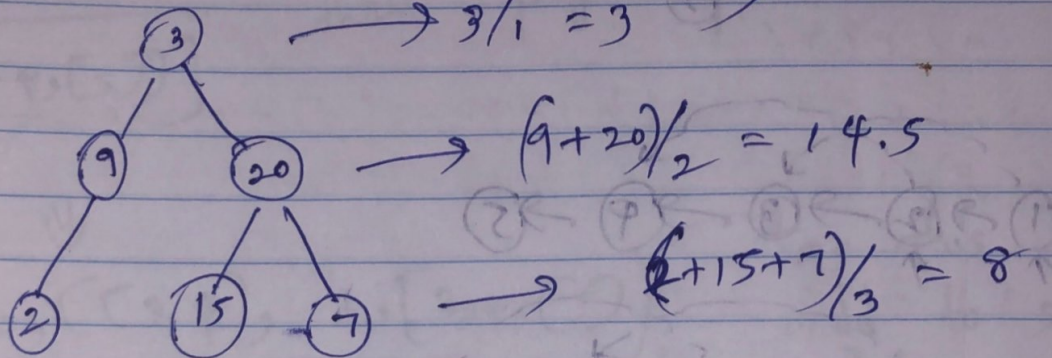 3 → 3/1 = 3
9 20 → (9+20)/2 = 14.5
2 15 7 → (2+15+7)/3 = 8